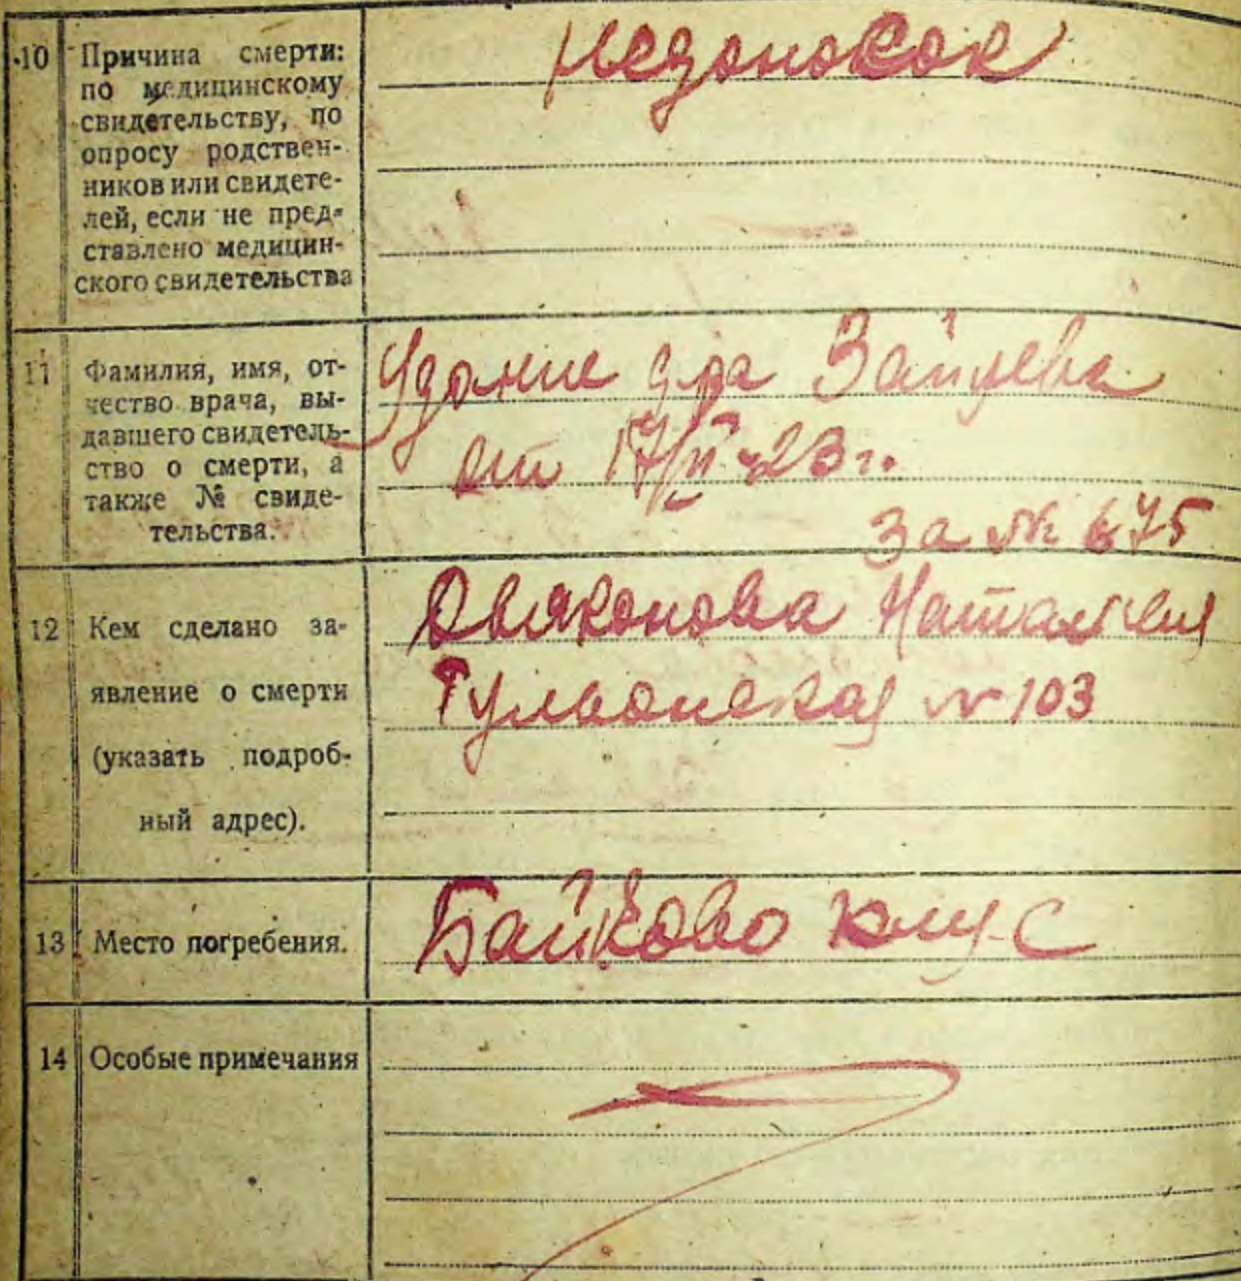 10 Причина смерти:
по медицинскому
свидетельству, по
опросу родствен-
ников или свидете-
лей, если не пред-
ставлено медицин-
ского свидетельства
Недоносок
11 Фамилия, имя, от-
чество врача, вы-
давшего свидетель-
ство о смерти, а
также № свиде-
тельства.
д-ра Зайцева
от 17/II-23 г.
за № 675
12 Кем сделано за-
явление о смерти
(указать подроб-
ный адрес).
Дьяконова Наталия
№ 103
13 Место погребения.
Байково
14 Особые примечания